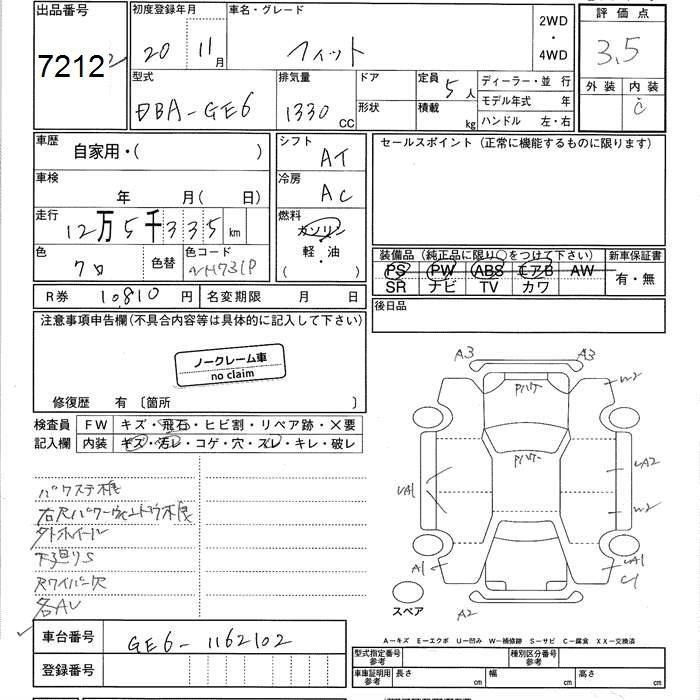 出品番号 初度登録年月 車名・グレード 2WD 評価点
7212 20 11月 フィット ・ 3.5
4WD 外装 内装
型式 排気量 ドア 定員 5人 ディーラー・並 行 C
DBA-GE6 1330 CC 形状 積載 kg モデル年式 年
ハンドル 左・右
車歴 自家用・( ) シフト AT セールスポイント(正常に機能するものに限ります)
車検 年 月( 日) 冷房 AC
走行 12万5千335km 燃料 ガソリン
色 クロ 色替 色コード NH731P 軽・油 ( )
装備品(純正品に限り○をつけて下さい) 新車保証書
PS PW ABS エアB AW 有・無
SR ナビ TV カワ
R券 10,810円 名変期限 月 日 後日品
注意事項申告欄(不具合内容等は具体的に記入して下さい)
ノークレーム車
no claim
修復歴 有 〔箇所 〕
検査員 FW キズ・飛石・ヒビ割・リペア跡・X要
記入欄 内装 キズ・汚レ・コゲ・穴・スレ・キレ・破レ
A3 A3
Pハゲ W2
Pハゲ
UA2
UA1 W2
A1 UA1
スペア A2
下廻りS
Rワイパー欠
各AU
A-キズ E-エクボ U-凹み W-補修跡 S-サビ C-腐食 XX-交換済
車台番号 GE6-1162102
型式指定番号 参考 種別区分番号 参考
登録番号
車庫証明用 参考 長さ cm 幅 cm 高さ cm